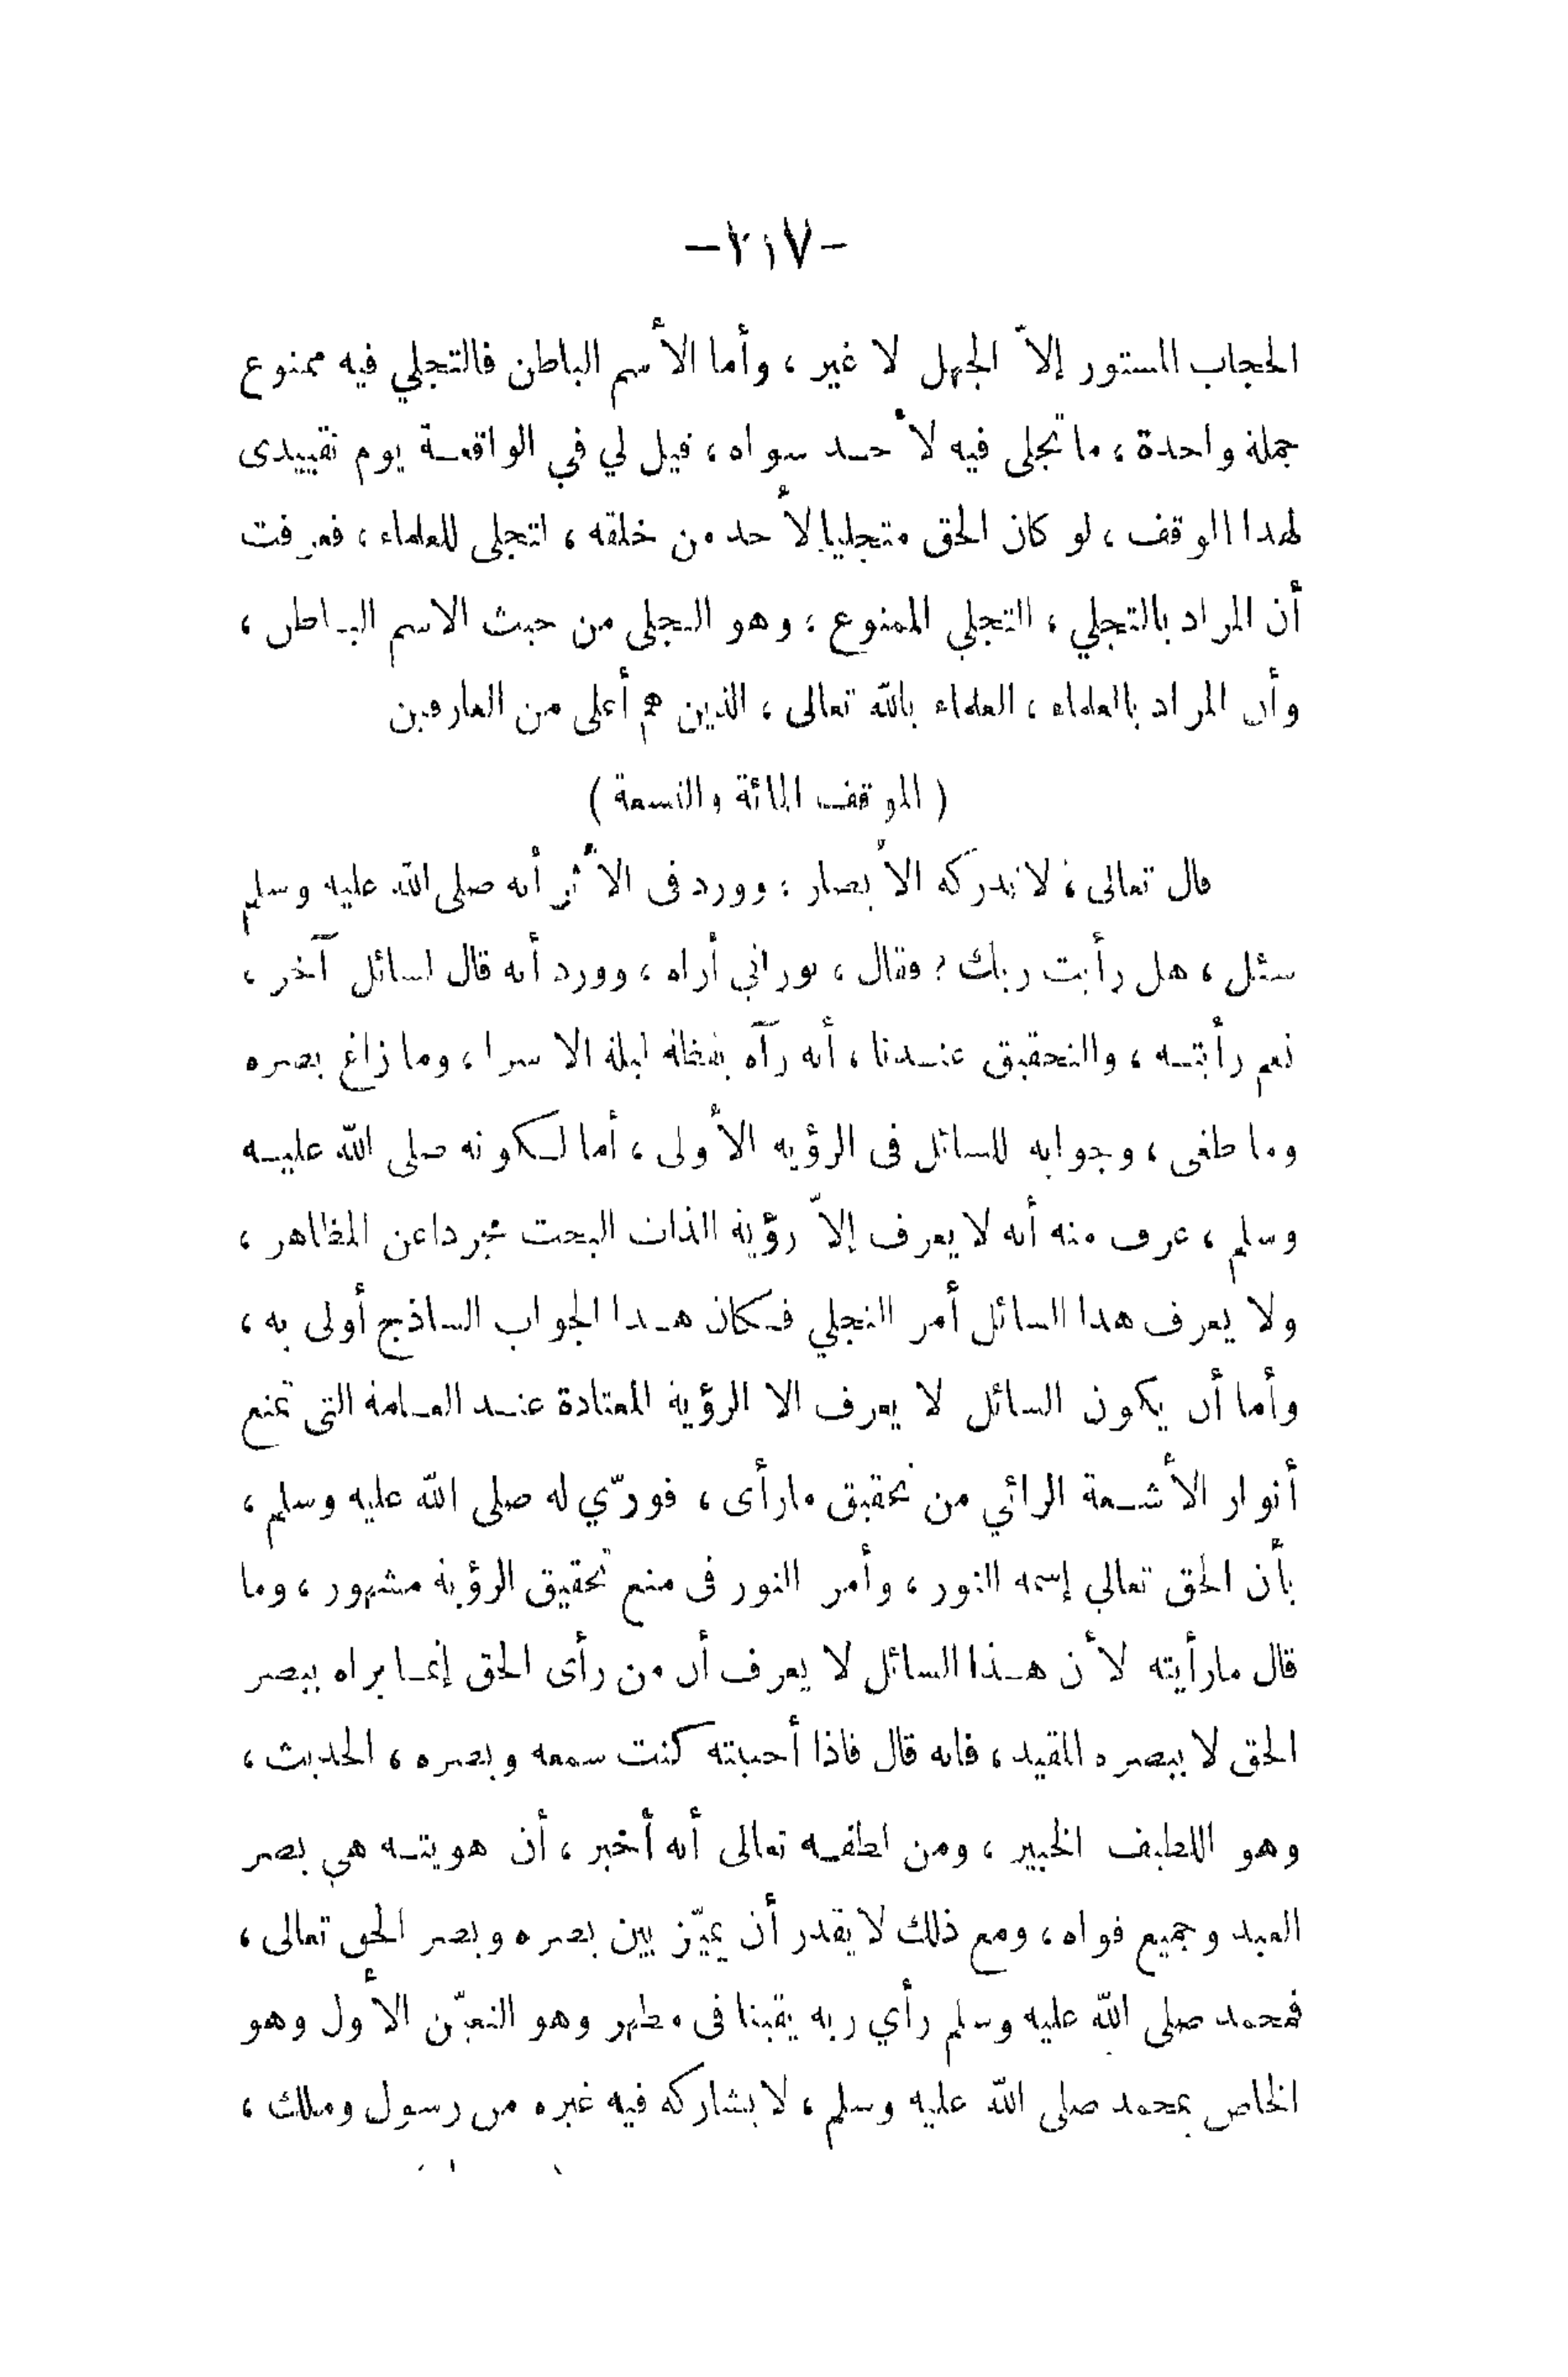 -٢١٧-
الحجاب المستور إلاّ الجهل لا غير ، وأما الأسم الباطن فالتجلي فيه ممنوع
جملة واحدة ، ما تجلى فيه لأحد سواه ، قيل لي في الواقعة يوم تقييدى
لهذا الموقف ، لو كان الحق متجليا لأحد من خلقه ، لتجلى للعلماء ، فعرفت
أن المراد بالتجلي ، التجلي الممنوع ، وهو التجلى من حيث الاسم الباطن ،
وأن المراد بالعلماء ، العلماء بالله تعالى ، الذين هم أعلى من العارفين
( الموقف المائة والتسعة )
قال تعالى ، لا تدركه الأبصار ، وورد فى الأثر أنه صلى الله عليه وسلم
سئل ، هل رأيت ربك ؟ فقال ، نور اني أراه ، وورد أنه قال لسائل آخر ،
نعم رأيته ، والتحقيق عندنا ، أنه رآه يقظة ليلة الاسرا ، وما زاغ بصره
وما طغى ، وجوابه للسائل فى الرؤيه الأولى ، أما لكونه صلى الله عليه
وسلم ، عرف منه أنه لا يعرف إلاّ رؤية الذات البحت مجردا عن المظاهر ،
ولا يعرف هذا السائل أمر التجلي فكان هذا الجواب الساذج أولى به ،
وأما أن يكون السائل لا يعرف الا الرؤية المعتادة عند العامة التى تمنع
أنوار الأشعة الرائي من تحقيق ما رأى ، فورّي له صلى الله عليه وسلم ،
بأن الحق تعالي إسمه النور ، وأمر النور فى منع تحقيق الرؤية مشهور ، وما
قال ما رأيته لأن هذا السائل لا يعرف أن من رأى الحق إنما يراه ببصر
الحق لا ببصره المقيد ، فانه قال فاذا أحببته كنت سمعه وبصره ، الحديث ،
وهو اللطيف الخبير ، ومن لطفه تعالى أنه أخبر ، أن هويته هي بصر
العبد وجميع قواه ، ومع ذلك لا يقدر أن يميّز بين بصره وبصر الحق تعالى ،
فمحمد صلى الله عليه وسلم رأي ربه يقينا فى مظهر وهو التعيّن الأول وهو
الخاص بمحمد صلى الله عليه وسلم ، لا يشاركه فيه غيره من رسول وملك ،